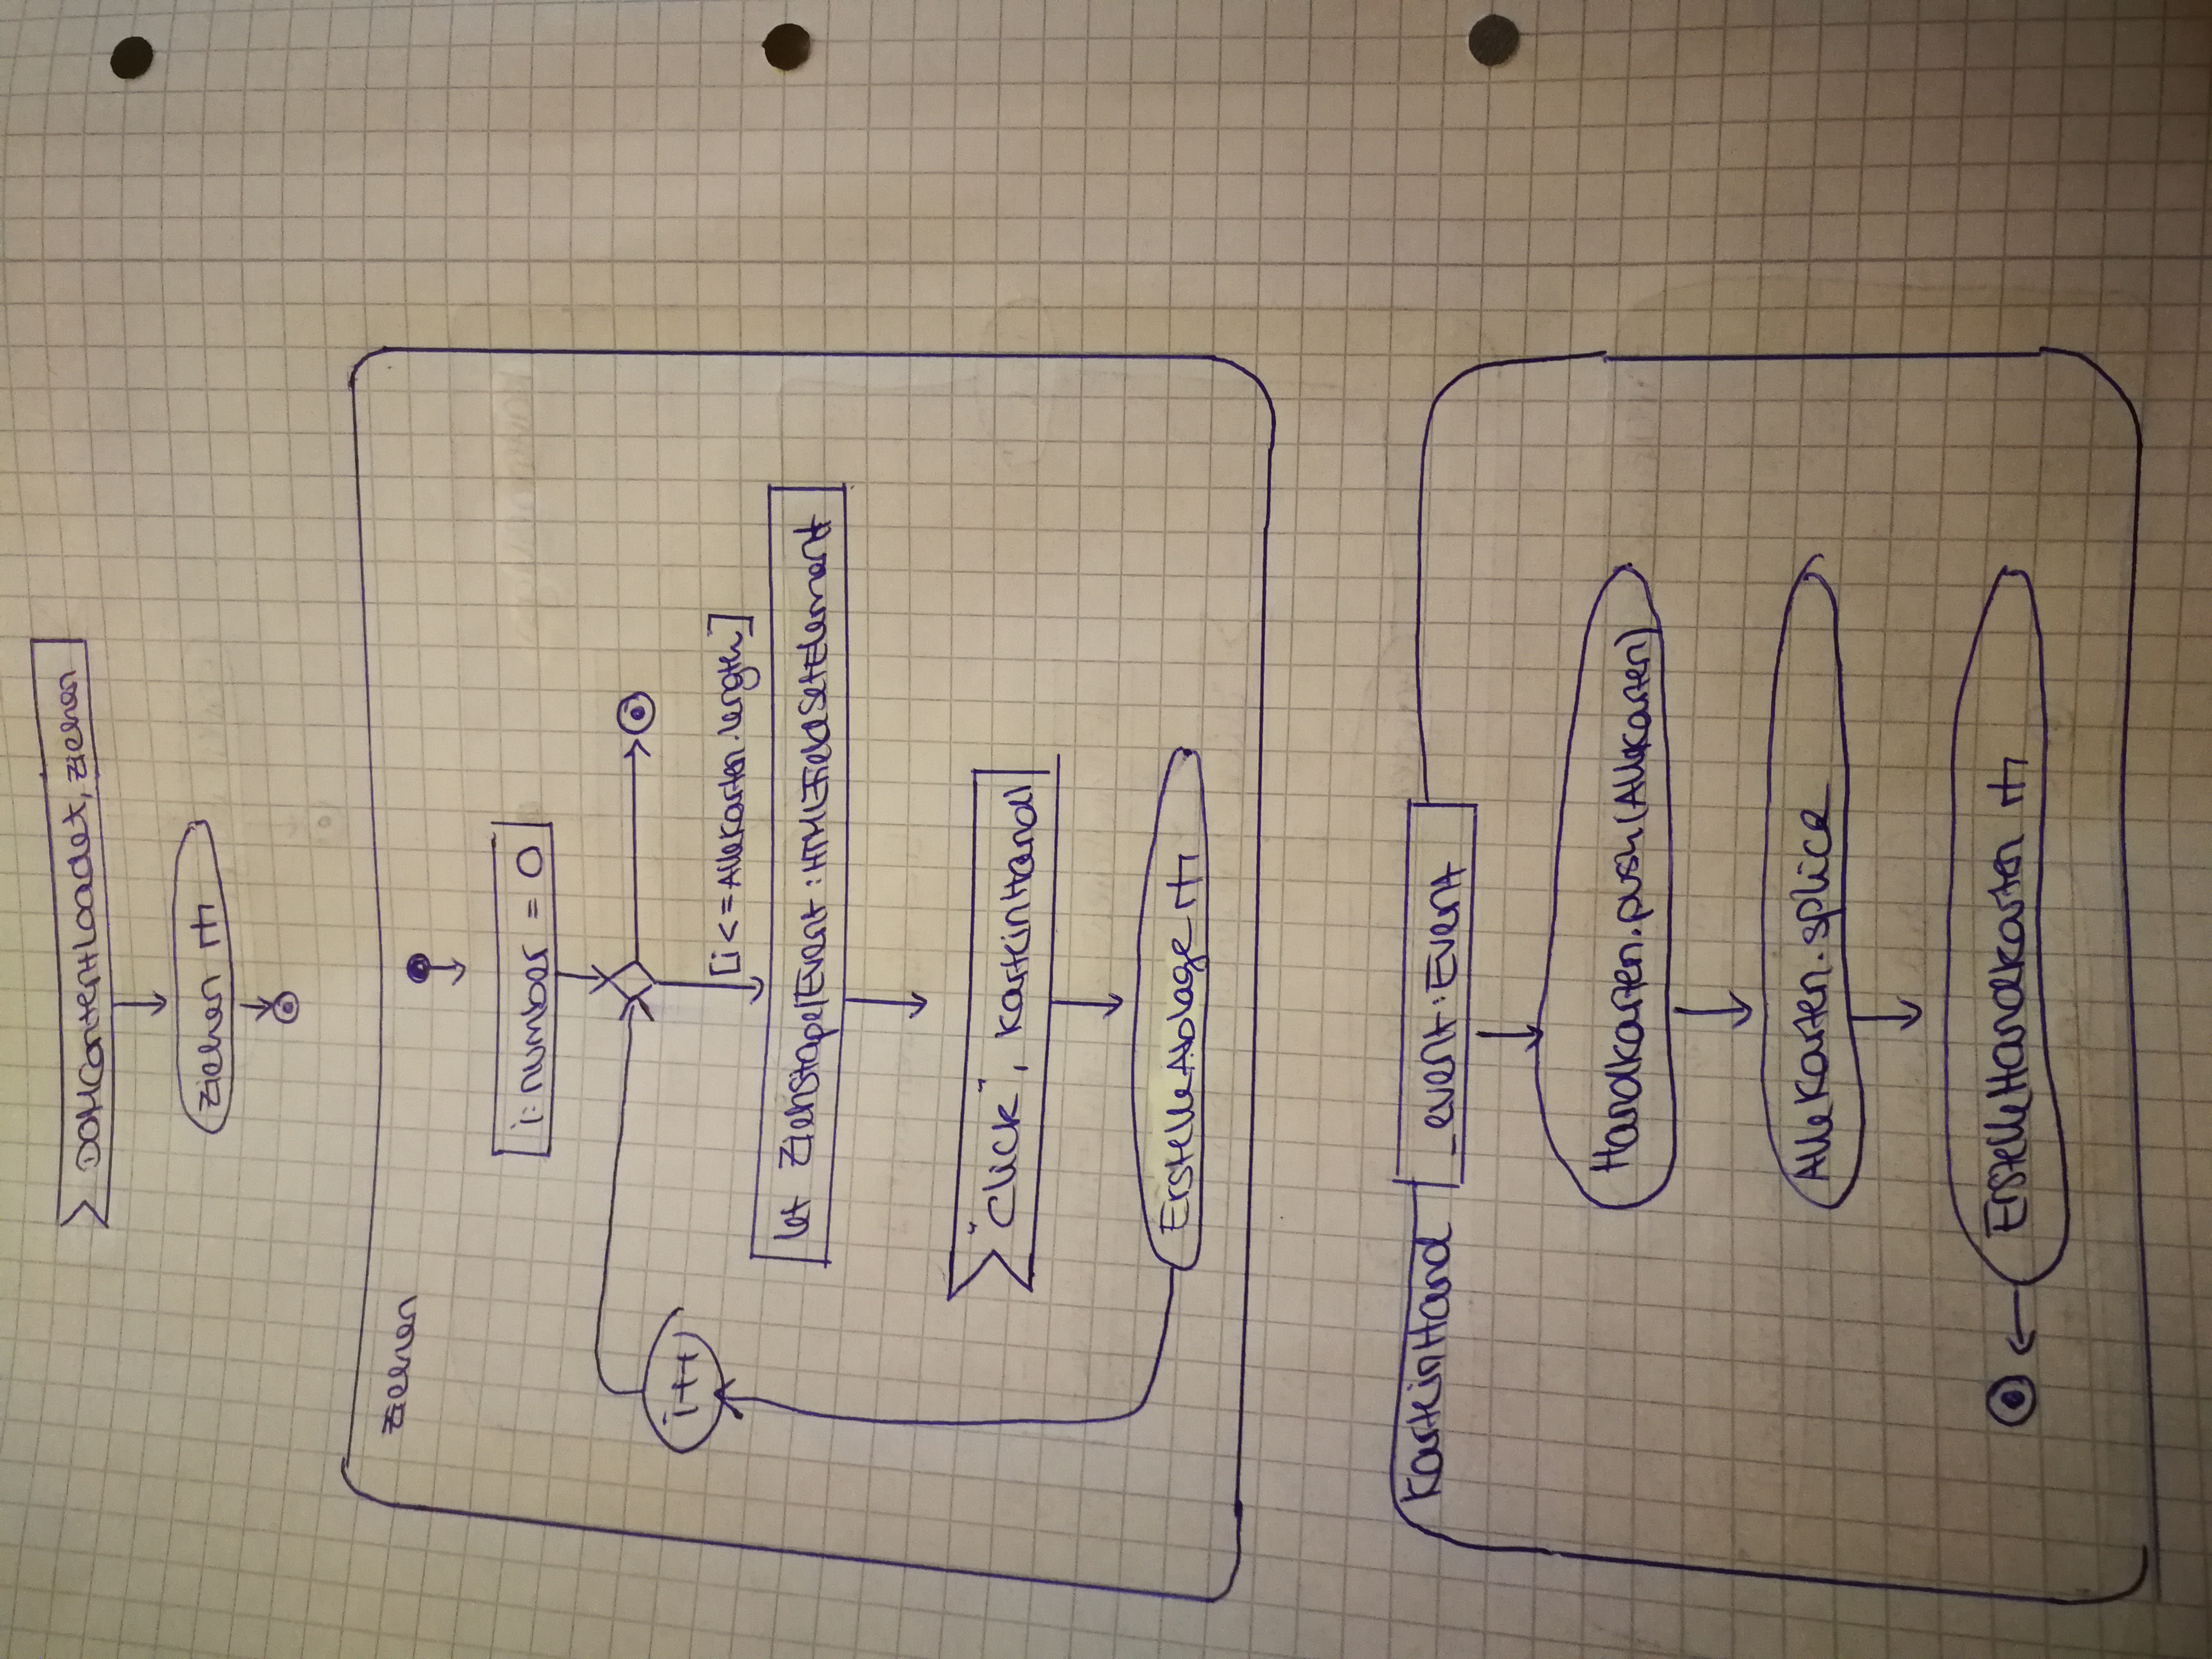 DOMContentLoadet, ziehen
ziehen
ziehen
i: number = 0
[i <= AlleKarten.length]
let ZiehStapelEvent : HTMLFieldSetElement
i++
"Click", KarteinHand
ErstelleAblage
KarteinHand
_event: Event
Handkarten.push(AlleKarten)
AlleKarten.splice
ErstelleHandkarten